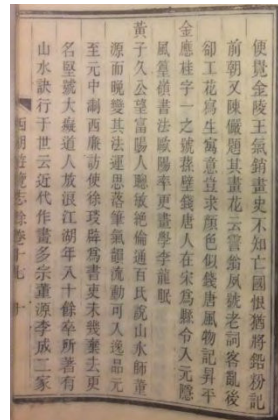 使覺金陵王氣銷畫史不知亡國恨猶將鉛粉記
前朝又陳儼題其畫花云霅翁夙號老詞客亂後
卻工花寫生寓意豈求顏色似錢唐風物記昇平
金應桂字一之號蓀壁錢唐人在宋爲縣令入元隱
風篁嶺書法歐陽率更畫學李龍眠
黃子久公望富陽人聰敏絶倫通百氏說山水師董
源而晚變其法運思落筆氣韻流動可入逸品元
至元中制西廉訪使徐琰辟爲書吏未幾棄去更
名堅號大癡道人放浪江湖年八十餘卒所著有
山水訣行于世云近代作畫多宗董源李成二家
西湖遊覽志餘卷十七 十